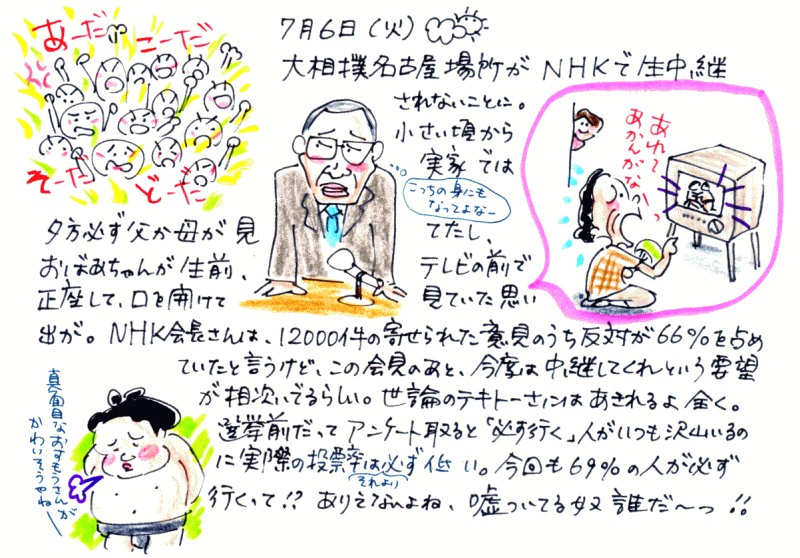 あーだ こーだ
そーだ どーだ
7月6日(火)
大相撲名古屋場所がNHKで生中継
されないことに。
小さい頃から
実家では
こっちの身にも
なってよなー
あれて
あかんがな〜っ
夕方必ず父か母が見
てたし、
おばあちゃんが生前、
テレビの前で
正座して、口を開けて
見ていた思い
出が。NHK会長さんは、12000件の寄せられた意見のうち反対が66%を占め
ていたと言うけど、この会見のあと、今度は中継してくれという要望
が相次いでるらしい。世論のテキトーさにはあきれるよ全く。
選挙前だってアンケート取ると「必ず行く」人がいつも沢山いるの
に実際の投票率は必ず低い。今回も69%の人が必ず
それより
行くって!?ありえないよね、嘘ついてる奴誰だ〜っ!!
真面目なおすもうさんが
かわいそうやね